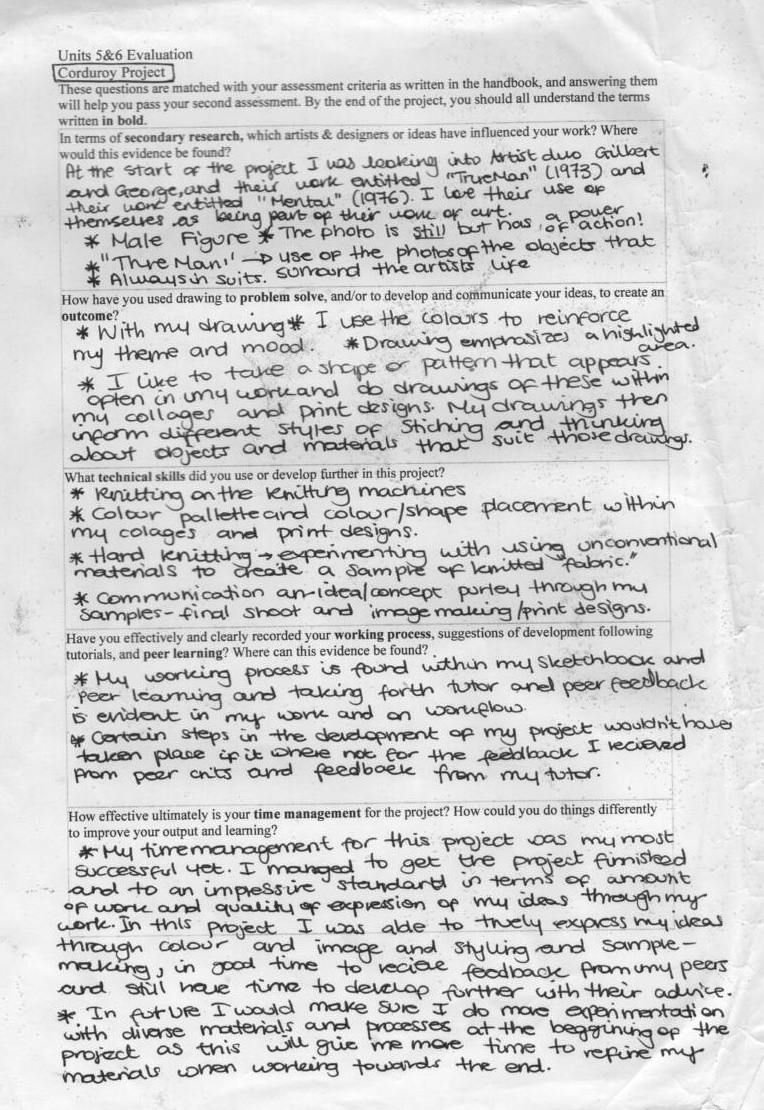 Units 5&6 Evaluation
Corduroy Project
These questions are matched with your assessment criteria as written in the handbook, and answering them
will help you pass your second assessment. By the end of the project, you should all understand the terms
written in bold.
In terms of secondary research, which artists & designers or ideas have influenced your work? Where
would this evidence be found?
At the start of the project I was looking into Artist duo Gilbert
and George, and their work entitled "TrueMan" (1973) and
their work entitled "Mental" (1976). I love their use of
themselves as being part of their work of art.
* Male Figure * The photo is still but has a power of action!
* "Thre Man" → use of the photos of the objects that
* Always in suits. surround the artists life
How have you used drawing to problem solve, and/or to develop and communicate your ideas, to create an
outcome?
* With my drawing * I use the colours to reinforce
my theme and mood. * Drawing emphasizes a highlighted area.
* I like to take a shape or pattern that appears
often in my work and do drawings of these within
my collages and print designs. My drawings then
inform different styles of Stiching and thinking
about objects and materials that suit those drawings.
What technical skills did you use or develop further in this project?
* Knitting on the knitting machines
* Colour pallette and colour/shape placement within
my colages and print designs.
* Hand knitting → experimenting with using unconventional
materials to create a sample of knitted "fabric."
* Communication an idea/concept purley through my
samples – final shoot and image making/print designs.
Have you effectively and clearly recorded your working process, suggestions of development following
tutorials, and peer learning? Where can this evidence be found?
* My working process is found within my sketchbook and
peer learning and taking forth tutor and peer feedback
is evident in my work and on workflow.
* Certain steps in the development of my project wouldn't have
taken place if it where not for the feedback I recieved
from peer crits and feedback from my tutor.
How effective ultimately is your time management for the project? How could you do things differently
to improve your output and learning?
* My time management for this project was my most
successful yet. I manged to get the project finnished
and to an impressive standard in terms of amount
of work and quality of expression of my ideas through my
work. In this project I was able to truely express my ideas
through colour and image and styling and sample-
making, in good time to recieve feedback from my peers
and still have time to develop further with their advice.
* In future I would make sure I do more experimentation
with diverse materials and processes at the beggining of the
project as this will give me more time to refine my
materials when working towards the end.